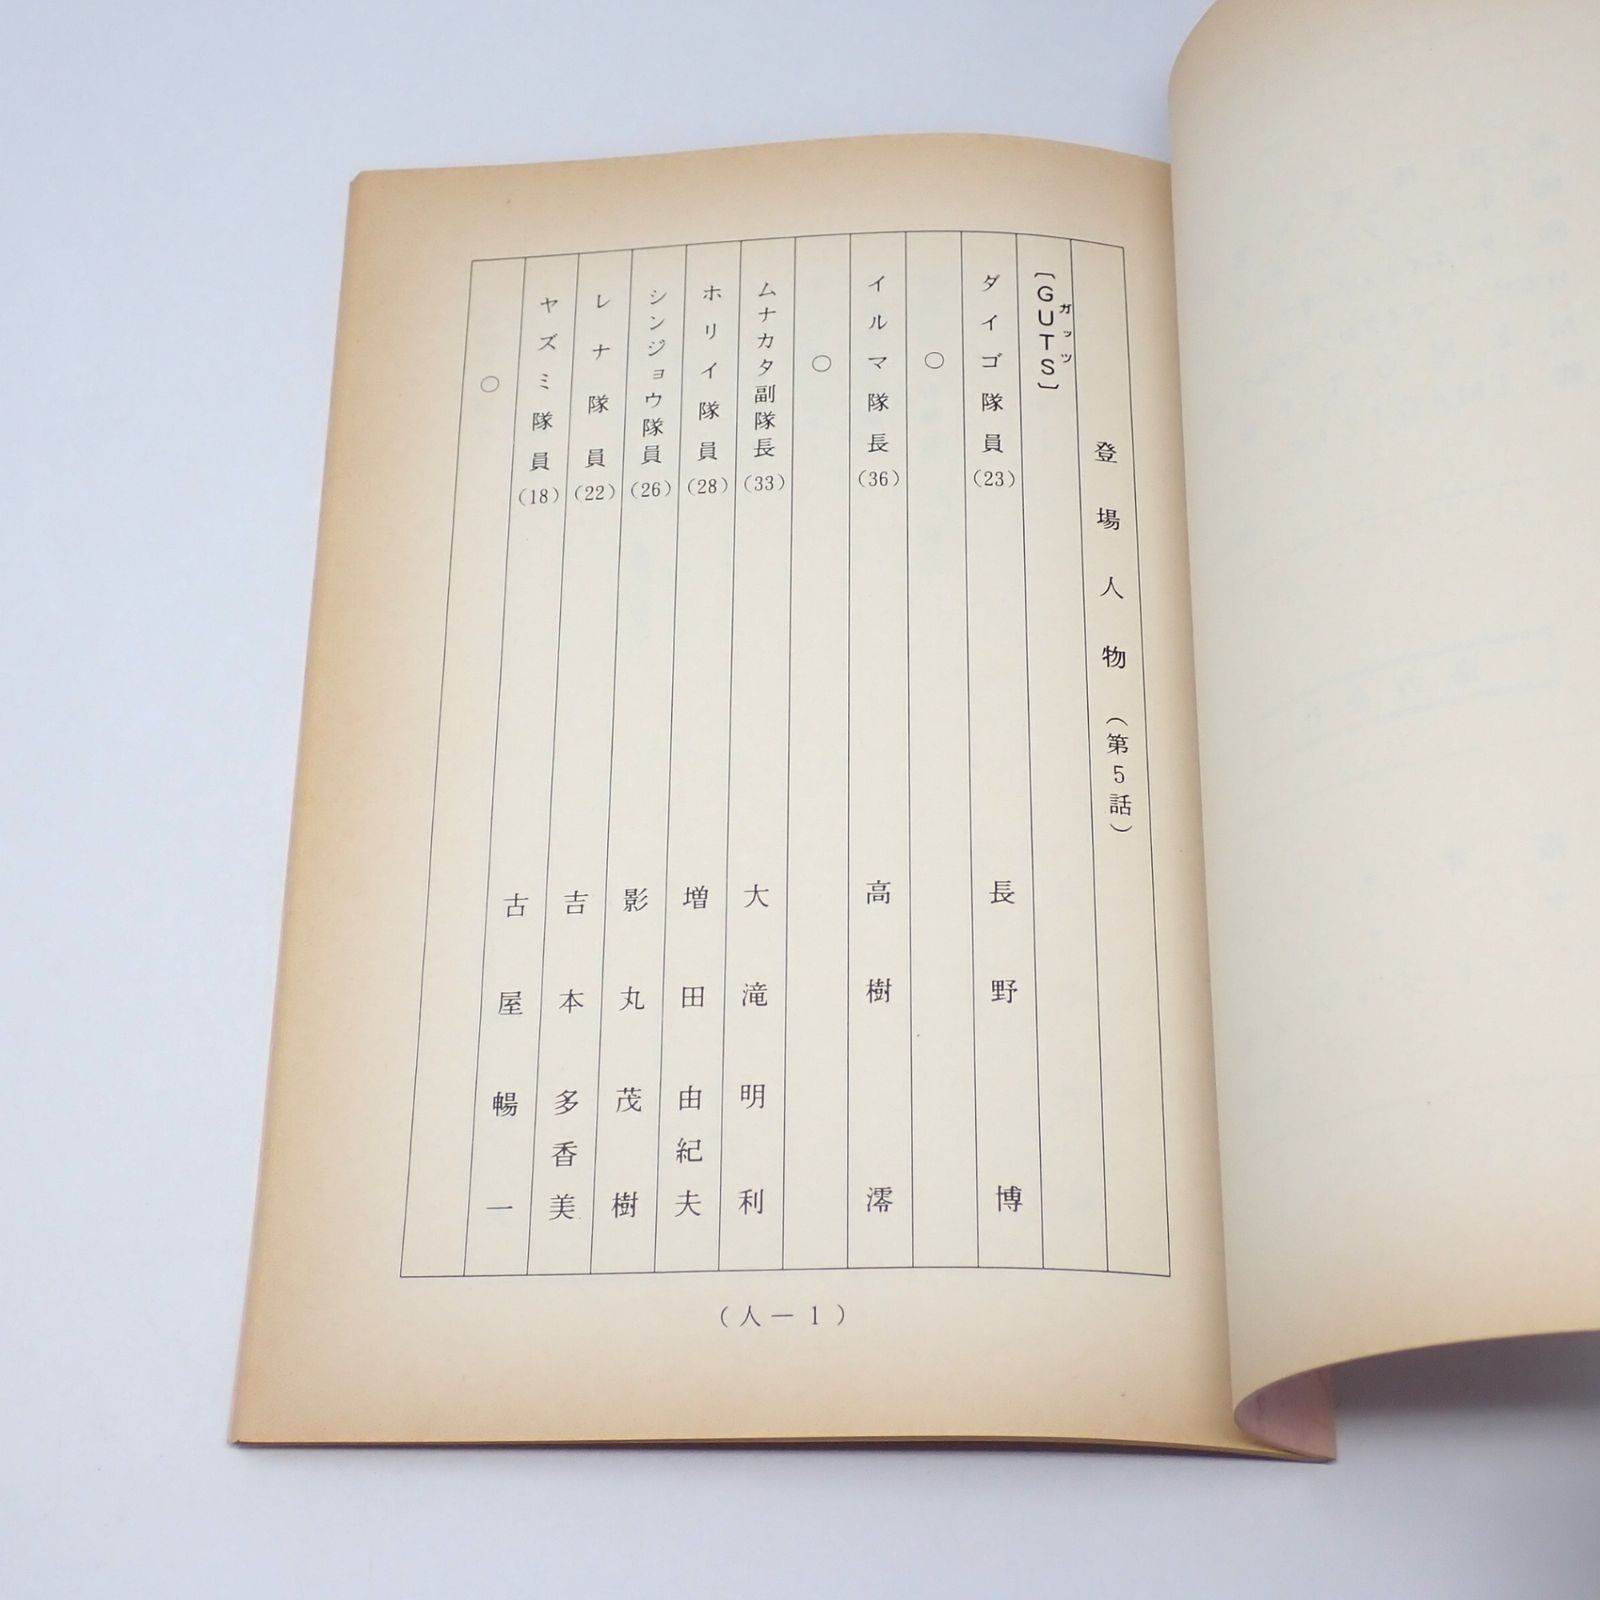 登場人物（第5話）
〔GUTS〕
ガッツ
ダイゴ隊員(23) 長野博
○
イルマ隊長(36) 高樹澪
○
ムナカタ副隊長(33) 大滝明利
ホリイ隊員(28) 増田由紀夫
シンジョウ隊員(26) 影丸茂樹
レナ隊員(22) 吉本多香美
ヤズミ隊員(18) 古屋暢一
○
（人－1）